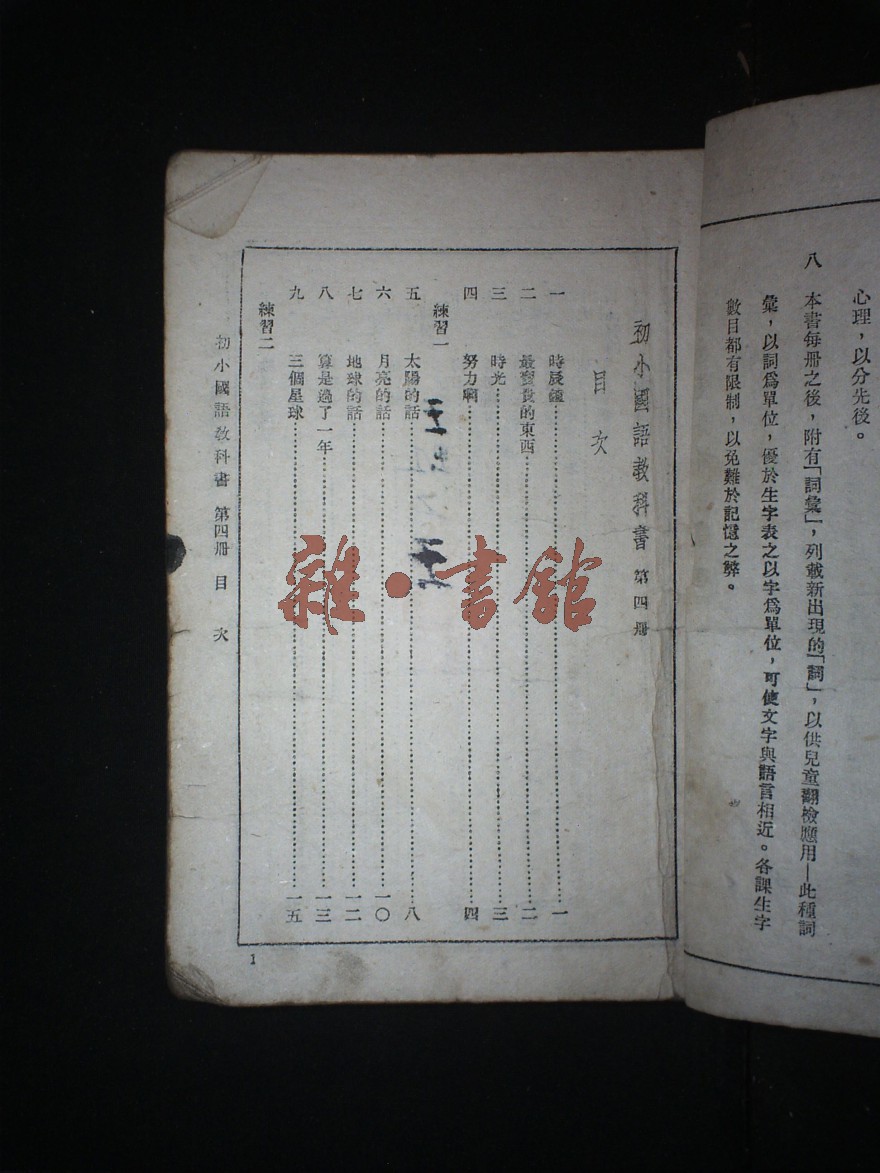 心理，以分先後。
八　本書每冊之後，附有「詞彙」，列載新出現的「詞」，以供兒童翻檢應用—此種詞
彙，以詞爲單位，優於生字表之以字爲單位，可使文字與語言相近。各課生字
數目都有限制，以免難於記憶之弊。
初小國語教科書　第四冊
目次
一　時辰鐘……一
二　最寶貴的東西……二
三　時光……三
四　努力啊……四
練習一
五　太陽的話……八
六　月亮的話……一〇
七　地球的話……一二
八　算是過了一年……一三
九　三個星球……一五
練習二
初小國語教科書　第四冊　目次
1
雜·書館